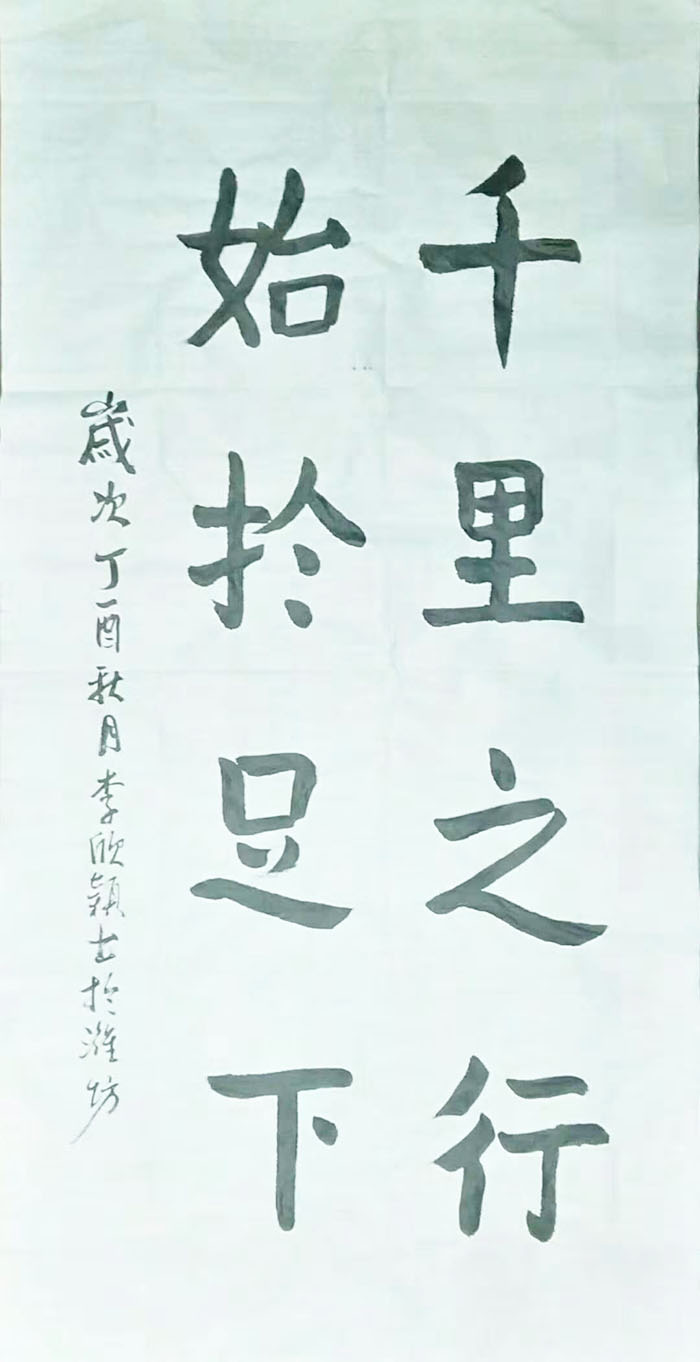 千里之行
始於足下
歲次丁酉秋月李欣穎书於濰坊